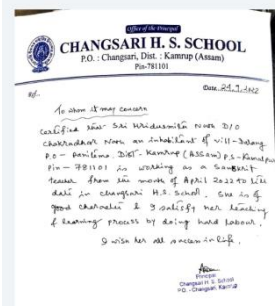 Office of the Principal
CHANGSARI H. S. SCHOOL
P.O. : Changsari, Dist. : Kamrup (Assam)
Pin-781101
Ref..
Date.
To whom it may concern
Certified that Sri Hridusmita Nath D/O
Chakradhar Nath an inhabitant of Vill-
P.O - Dist - Kamrup (Assam) P.S - Kamalpur
Pin - 781101 is working as a Sanskrit
teacher from the month of April 2022 to till
date in Changsari H.S. School. She is of
good character & I satisfy her teaching
& learning process by doing hard labour.
I wish her all success in life.
Principal
Changsari H. S. School
Changsari, Kamrup